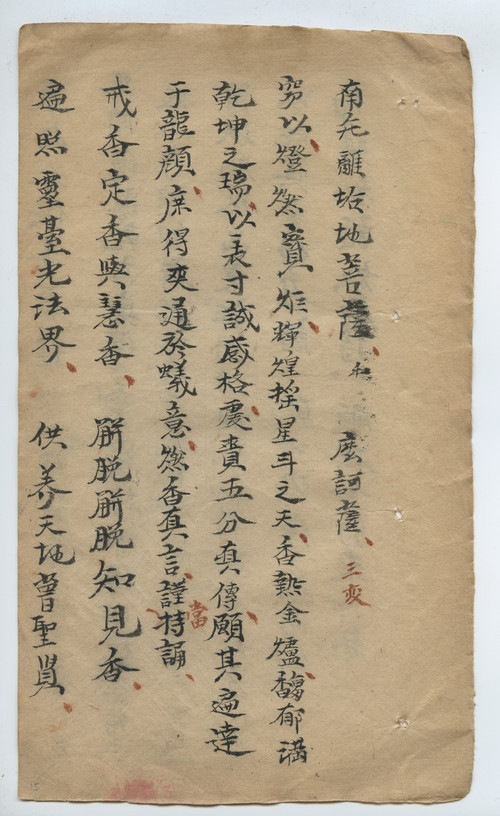 南无離垢地菩薩 麽訶薩 三変
窃以燈然寶炬輝煌摇星斗之天香熱金爐馥郁满
乾坤之瑞以表寸誠感格處賁五分真傳願其遍達
于龍顔庶得奕通於蟻意然香真言謹當持誦
戒香定香與慧香 解脱解脱知見香
遍照靈臺光法界 供养天地曾聖賢